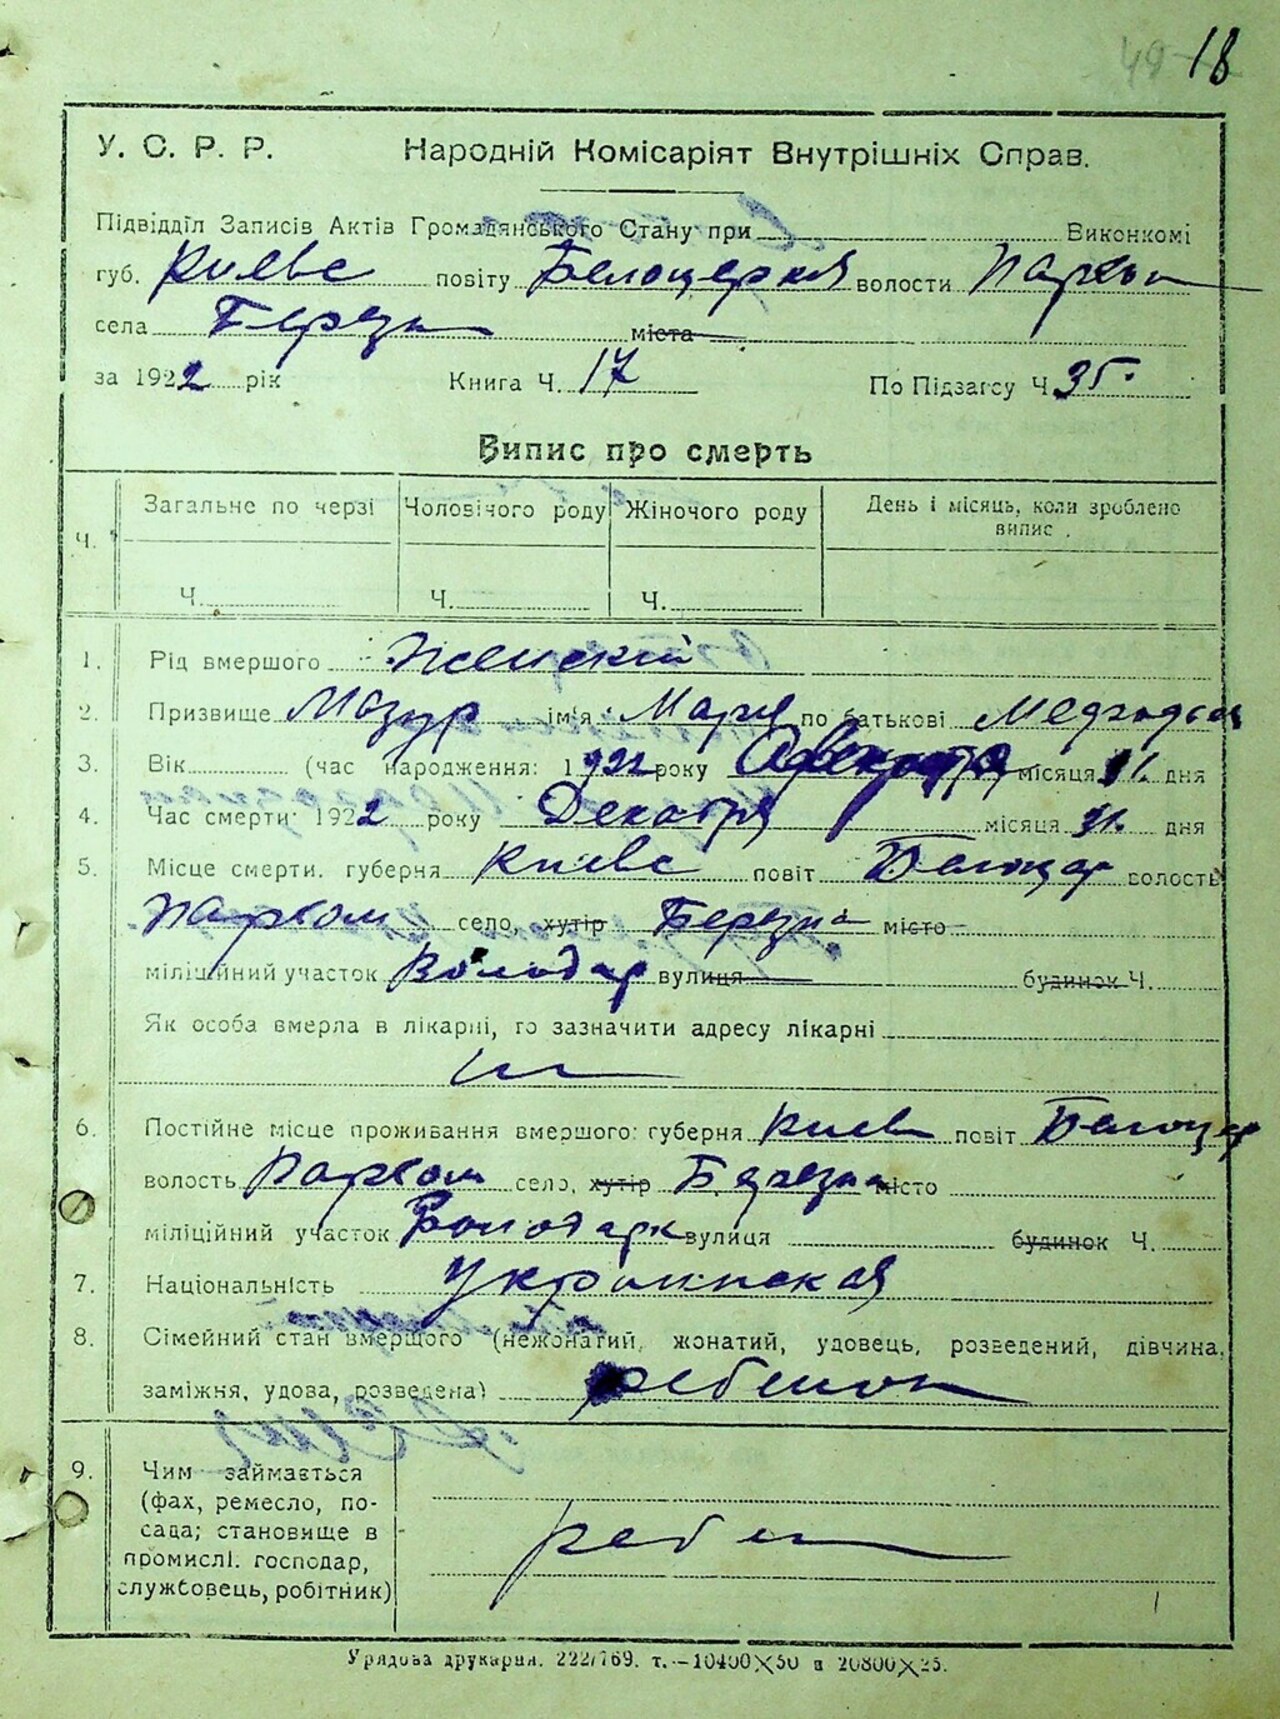 18
У. С. Р. Р. Народній Комісаріят Внутрішніх Справ.
Підвідділ Записів Актів Громадянського Стану при Виконкомі
губ. Киевс повіту Белоцеркия волости Пархом
села Березн міста
за 1922 рік Книга Ч. 17 По Підзагсу Ч 35.
Випис про смерть
Ч. Загальне по черзі Чоловічого роду Жіночого роду День і місяць, коли зроблено
випис
Ч. Ч. Ч.
1. Рід вмершого Женский
2. Призвище Мазур ім'я Мария по батькові
3. Вік (час народження: 1922 року місяця дня
4. Час смерти: 1922 року Декабря місяця 31. дня
5. Місце смерти. губерня Киевс повіт Белоцер волость
Пархом село, хутір Березна місто
міліційний участок Володар вулиця будинок Ч.
Як особа вмерла в лікарні, го зазначити адресу лікарні
6. Постійне місце проживання вмершого: губерня Киев повіт Белоцер
волость Пархом село, хутір Березна місто
міліційний участок Володарк вулиця будинок Ч.
7. Національність Украинская
8. Сімейний стан вмершого (нежонатий, жонатий, удовець, розведений, дівчина,
заміжня, удова, розведена) ребенок
9. Чим займається
(фах, ремесло, по-
сада; становище в
промислі. господар,
службовець, робітник)
реб
Урядова друкарня. 222/769. т.—10400×50 и 20800×25.